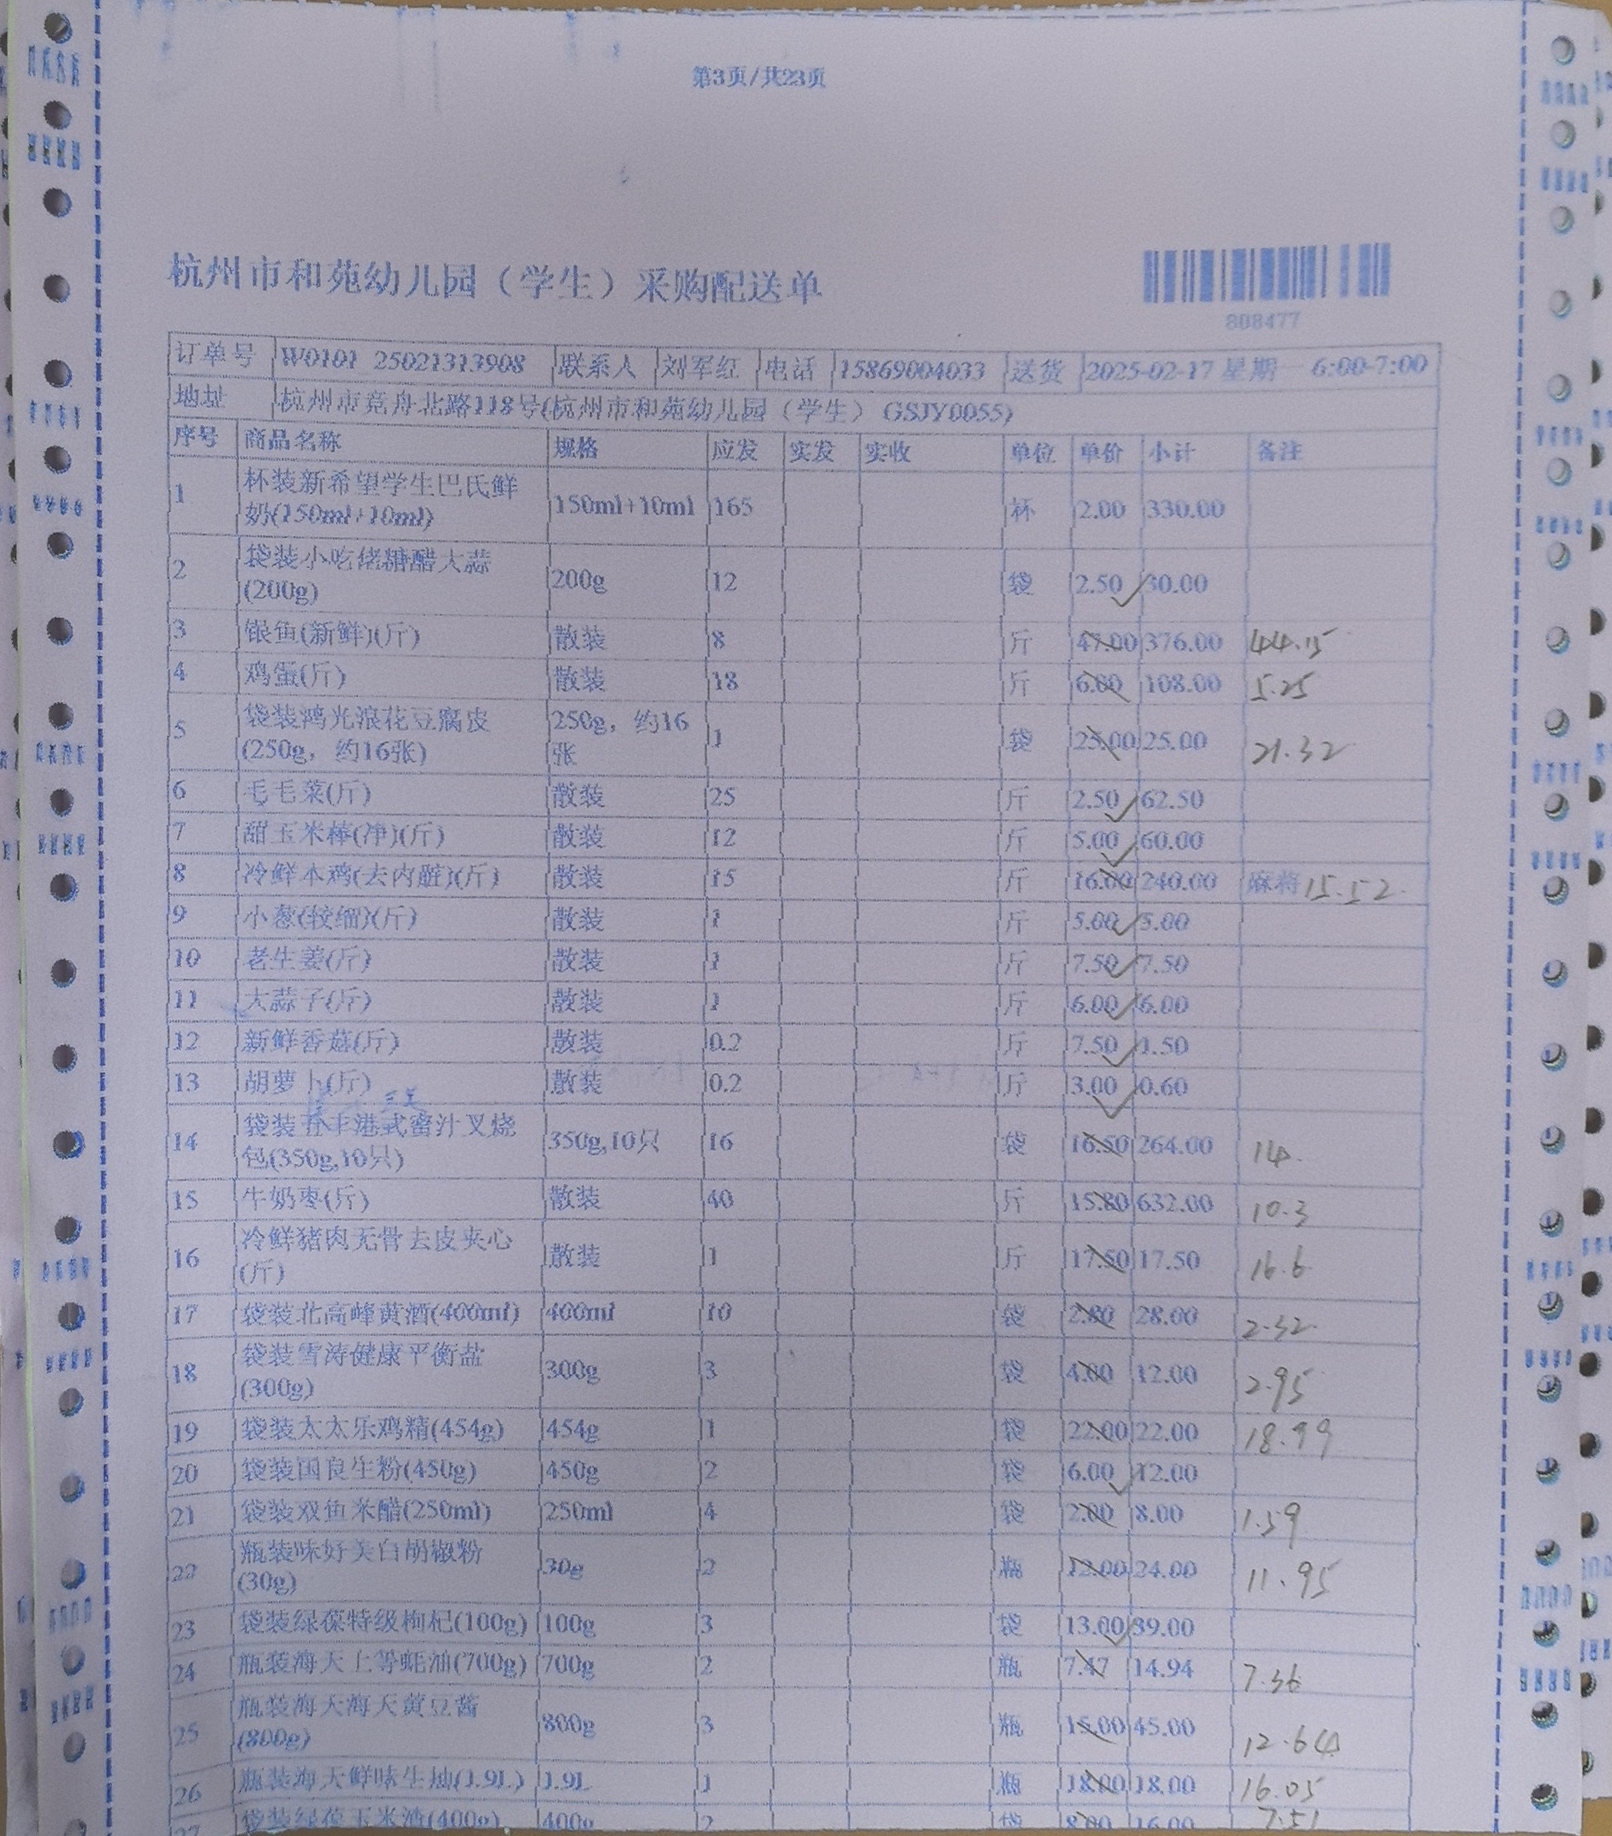 第3页/共23页
杭州市和苑幼儿园（学生）采购配送单
808477
订单号 W0101 25021313908 联系人 刘军红 电话 15869004033 送货 2025-02-17 星期一 6:00-7:00
地址 杭州市竞舟北路118号(杭州市和苑幼儿园（学生） GSJY0055)
序号 商品名称 规格 应发 实发 实收 单位 单价 小计 备注
1 杯装新希望学生巴氏鲜奶(150ml+10ml) 150ml+10ml 165 杯 2.00 330.00
2 袋装小吃佬糖醋大蒜(200g) 200g 12 袋 2.50 30.00
3 银鱼(新鲜)(斤) 散装 8 斤 47.00 376.00 44.15
4 鸡蛋(斤) 散装 18 斤 6.00 108.00 5.25
5 袋装鸿光浪花豆腐皮(250g，约16张) 250g，约16张 1 袋 25.00 25.00 21.32
6 毛毛菜(斤) 散装 25 斤 2.50 62.50
7 甜玉米棒(净)(斤) 散装 12 斤 5.00 60.00
8 冷鲜本鸡(去内脏)(斤) 散装 15 斤 16.00 240.00 麻将 15.52
9 小葱(较细)(斤) 散装 1 斤 5.00 5.00
10 老生姜(斤) 散装 1 斤 7.50 7.50
11 大蒜子(斤) 散装 1 斤 6.00 6.00
12 新鲜香菇(斤) 散装 0.2 斤 7.50 1.50
13 胡萝卜(斤) 散装 0.2 斤 3.00 0.60
14 袋装五丰港式蜜汁叉烧包(350g,10只) 350g,10只 16 袋 16.50 264.00 14.
15 牛奶枣(斤) 散装 40 斤 15.80 632.00 10.3
16 冷鲜猪肉无骨去皮夹心(斤) 散装 1 斤 17.50 17.50 16.6
17 袋装北高峰黄酒(400ml) 400ml 10 袋 2.80 28.00 2.32
18 袋装雪涛健康平衡盐(300g) 300g 3 袋 4.00 12.00 2.95
19 袋装太太乐鸡精(454g) 454g 1 袋 22.00 22.00 18.99
20 袋装国良生粉(450g) 450g 2 袋 6.00 12.00
21 袋装双鱼米醋(250ml) 250ml 4 袋 2.00 8.00 1.59
22 瓶装味好美白胡椒粉(30g) 30g 2 瓶 12.00 24.00 11.95
23 袋装绿葆特级枸杞(100g) 100g 3 袋 13.00 39.00
24 瓶装海天上等蚝油(700g) 700g 2 瓶 7.47 14.94 7.36
25 瓶装海天海天黄豆酱(800g) 800g 3 瓶 15.00 45.00 12.64
26 瓶装海天鲜味生抽(1.9L) 1.9L 1 瓶 18.00 18.00 16.05
27 袋装绿葆玉米渣(400g) 400g 2 袋 8.00 16.00 7.51